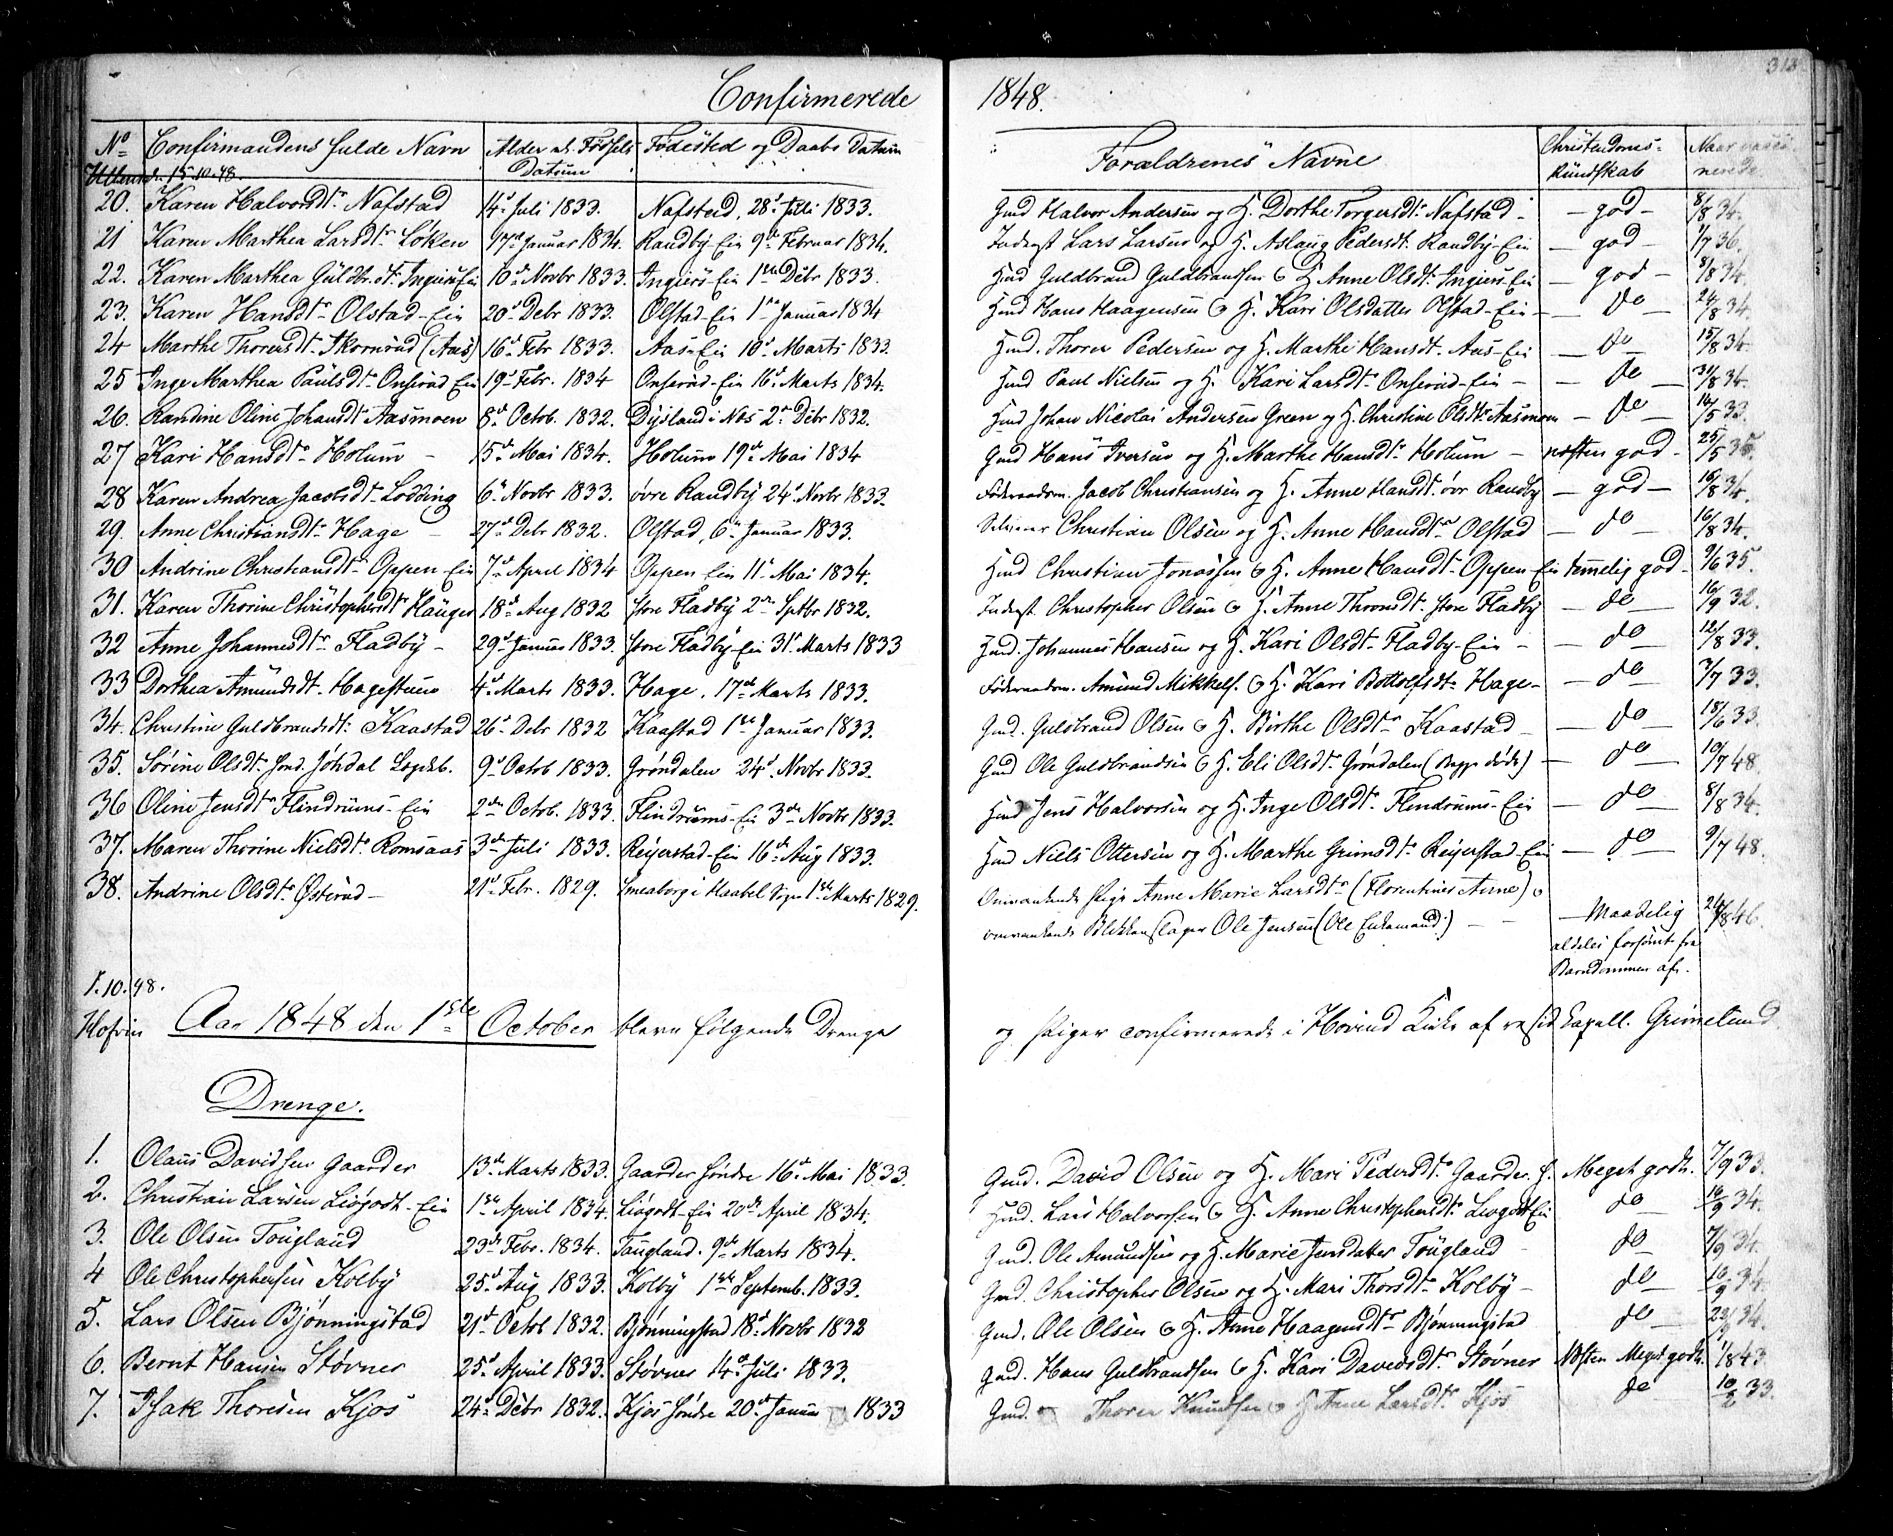 Confirmerede 1848.
313
No Confirmandens fulde Navn Alder el. Fødsels Datum Fødested og Daabs Datum Forældrenes Navne Christendoms-Kundskab Naar vacci-nerede
15.10.48.
20. Karen Halvorsdtr Nafstad 14d Juli 1833. Nafstad, 28d Juli 1833. Gmd Halvor Andersen og H. Dorthe Torgersdtr Nafstad - god - 8/8 34.
21 Karen Marthea Larsdtr Løken 17d Januar 1834. Randby-Ein 9de Februar 1834. Inderst Lars Larsen og H. Aslaug Pedersdtr Randby-Ein - god - 1/7 36.
22. Karen Marthea Guldbr.dt Ingiers Ein 10d Novbr 1833. Ingiers-Ein 1ste Debr 1833. Hmd Guldbrand Guldbrandsen & H. Anne Olsdtr Ingiers-Ein - god - 8/8 34.
23. Karen Hansdtr Olstad-Ein 20d Debr 1833. Olstad-Ein 1ste Januar 1834 Hmd Hans Haagensen & H. Kari Olsdatter Olstad-Ein - do - 24/8 34.
24 Marthe Thorersdtr Skornrud (Aas) 16d Febr 1833. Aas-Ein 10d Marts 1833. Hmd. Thorer Pedersen og H. Marthe Hansdtr Aas-Ein - do - 15/8 34.
25 Inge Marthea Paulsdtr Onsrud Ein 19d Febr. 1834 Onsrud-Ein 16d Marts 1834. Hmd Paul Nielsen og H. Kari Larsdtr Onsrud-Ein - do - 31/8 34.
26. Randine Oline Johansdtr Aasmoen 8d Octob. 1832. Dysland i Nes 2d Debr 1832. Hmd Johan Nicolai Andersen Green og H. Christine Olsdtr Aasmoen - do - 16/5 33.
27 Kari Hansdtr Holum - 15d Mai 1834. Holum 19d Mai 1834 Gmd Hans Iversen og H. Marthe Hansdtr Holum - næsten god - 25/5 35.
28 Karen Andrea Jacobsdtr Lodding 6d Novbr 1833. øvre Randby 24d Novbr 1833. Föderaadsm. Jacob Christiansen og H. Anne Hansdtr øvr Randby - god - 16/8 34.
29. Anne Christiansdtr Hage - 27d Debr 1832. Olstad, 6d Januar 1833. Christian Olsen og H. Anne Hansdtr Olstad - do - 16/8 34.
30 Andrine Christiansdtr Oppen-Ein 7d April 1834 Oppen Ein 11d Mai 1834. Hmd Christian Jonassen & H. Anne Hansdtr Oppen-Ein temmelig god - 9/6 35.
31. Karen Thorine Christophersdtr Hauger 18d Aug 1832 Store Fladby 2den Septbr 1832. Inderst Christopher Olsen & H. Anne Thoresdtr Store Fladby - do - 16/9 32.
32 Anne Johannesdtr Fladby - 29d Januar 1833. Store Fladby-Ein 31d Marts 1833 Hmd. Johannes Hansen og H. Kari Olsdtr Fladby-Ein - do - 12/8 33.
33 Dorthea Amundsdt Hagestuen 4d Marts 1833. Hage. 17d Marts 1833. Föderaadsm. Amund Mikkels. & H. Kari Bottolfsdtr Hage - do - 7/7 33.
34. Christine Guldbrandsdtr Kaastad 26d Debr 1832 Kaastad 1ste Januar 1833. Gmd. Guldbrand Olsen & H. Birthe Olsdtr Kaastad - do - 18/6 33.
35. Sørine Olsdtr 9d Octob 1833. Grøndalen 24d Novbr 1833. Gmd Ole Guldbrandsen & H. Eli Olsdtr Grøndalen (begge døde) - do - 10/7 48.
36 Oline Jensdtr Flindrums-Ein 2den Octob. 1833. Flindrums-Ein 3die Novbr 1833. Hmd Jens Halvorsen og H. Inge Olsdtr Flindrums-Ein - do - 8/8 34.
37. Maren Thorine Nielsdtr Romsaas 3die Juli 1833. Reijerstad-Ein 16d Aug 1833. Hmd Niels Ottersen og H. Marthe Grimsdtr Reijerstad-Ein - do - 9/7 48.
38. Andrine Olsdtr Østerud - 21d Febr. 1829. Smeaborg i Haabel Sogn 1ste Marts 1829. Omvankende Pige Anne Marie Larsdtr (Florentines Anne) &
omvankende Blikkenslager Ole Jensen - - Maadelig 24/8 46.
aldeles forsømt fra
Barndommen af.
1.10.48.
Hofvin Aar 1848 den 1ste October bleve følgende Drenge og Piger confirmerede i Hovind Kirke af resid Capell. Grimelund
Drenge.
1. Olaus Davidsen Gaarder 13d Marts 1833. Gaarder søndre 16d Mai 1833. Gmd. David Olsen og H. Mari Pedersdtr Gaarder. s. Meget godt. 7/9 33.
2. Christian Larsen Liøgodt-Ein 1ste April 1834. Liøgodt-Ein 20de April 1834. Hmd. Lars Halvorsen & H. Anne Christophersdtr Liøgodt Ein do 10/9 34.
3. Ole Olsen Tougland 23d Febr. 1834. Tougland. 9de Marts 1834. Gmd. Ole Amundsen og H. Marie Jensdatter Tougland - do 7/9 34.
4 Ole Christophersen Kolby 25d Aug 1833. Kolby 1ste Septemb. 1833. Gmd. Christopher Olsen og H. Mari Thorsdtr Kolby - do 10/9 34.
5. Lars Olsen Bjønningstad 21d Octob 1832. Bjønningstad 18d Novbr 1832 Gmd. Ole Olsen & H. Anne Haagensdtr Bjønningstad do 34.
6. Bernt Hansen Støvner 25d April 1833. Støvner 14d Juli 1833. Gmd. Hans Guldbrandsen & H. Kari Davidsdtr Støvner Næsten Meget godt. 1/8 43
7. Isak Thoresen Kjos 24d Debr 1832. Kjos søndre 20d Januar 1833 Gmd. Thorer Knudsen & H Anne Larsdtr Kjos do 10/2 33.